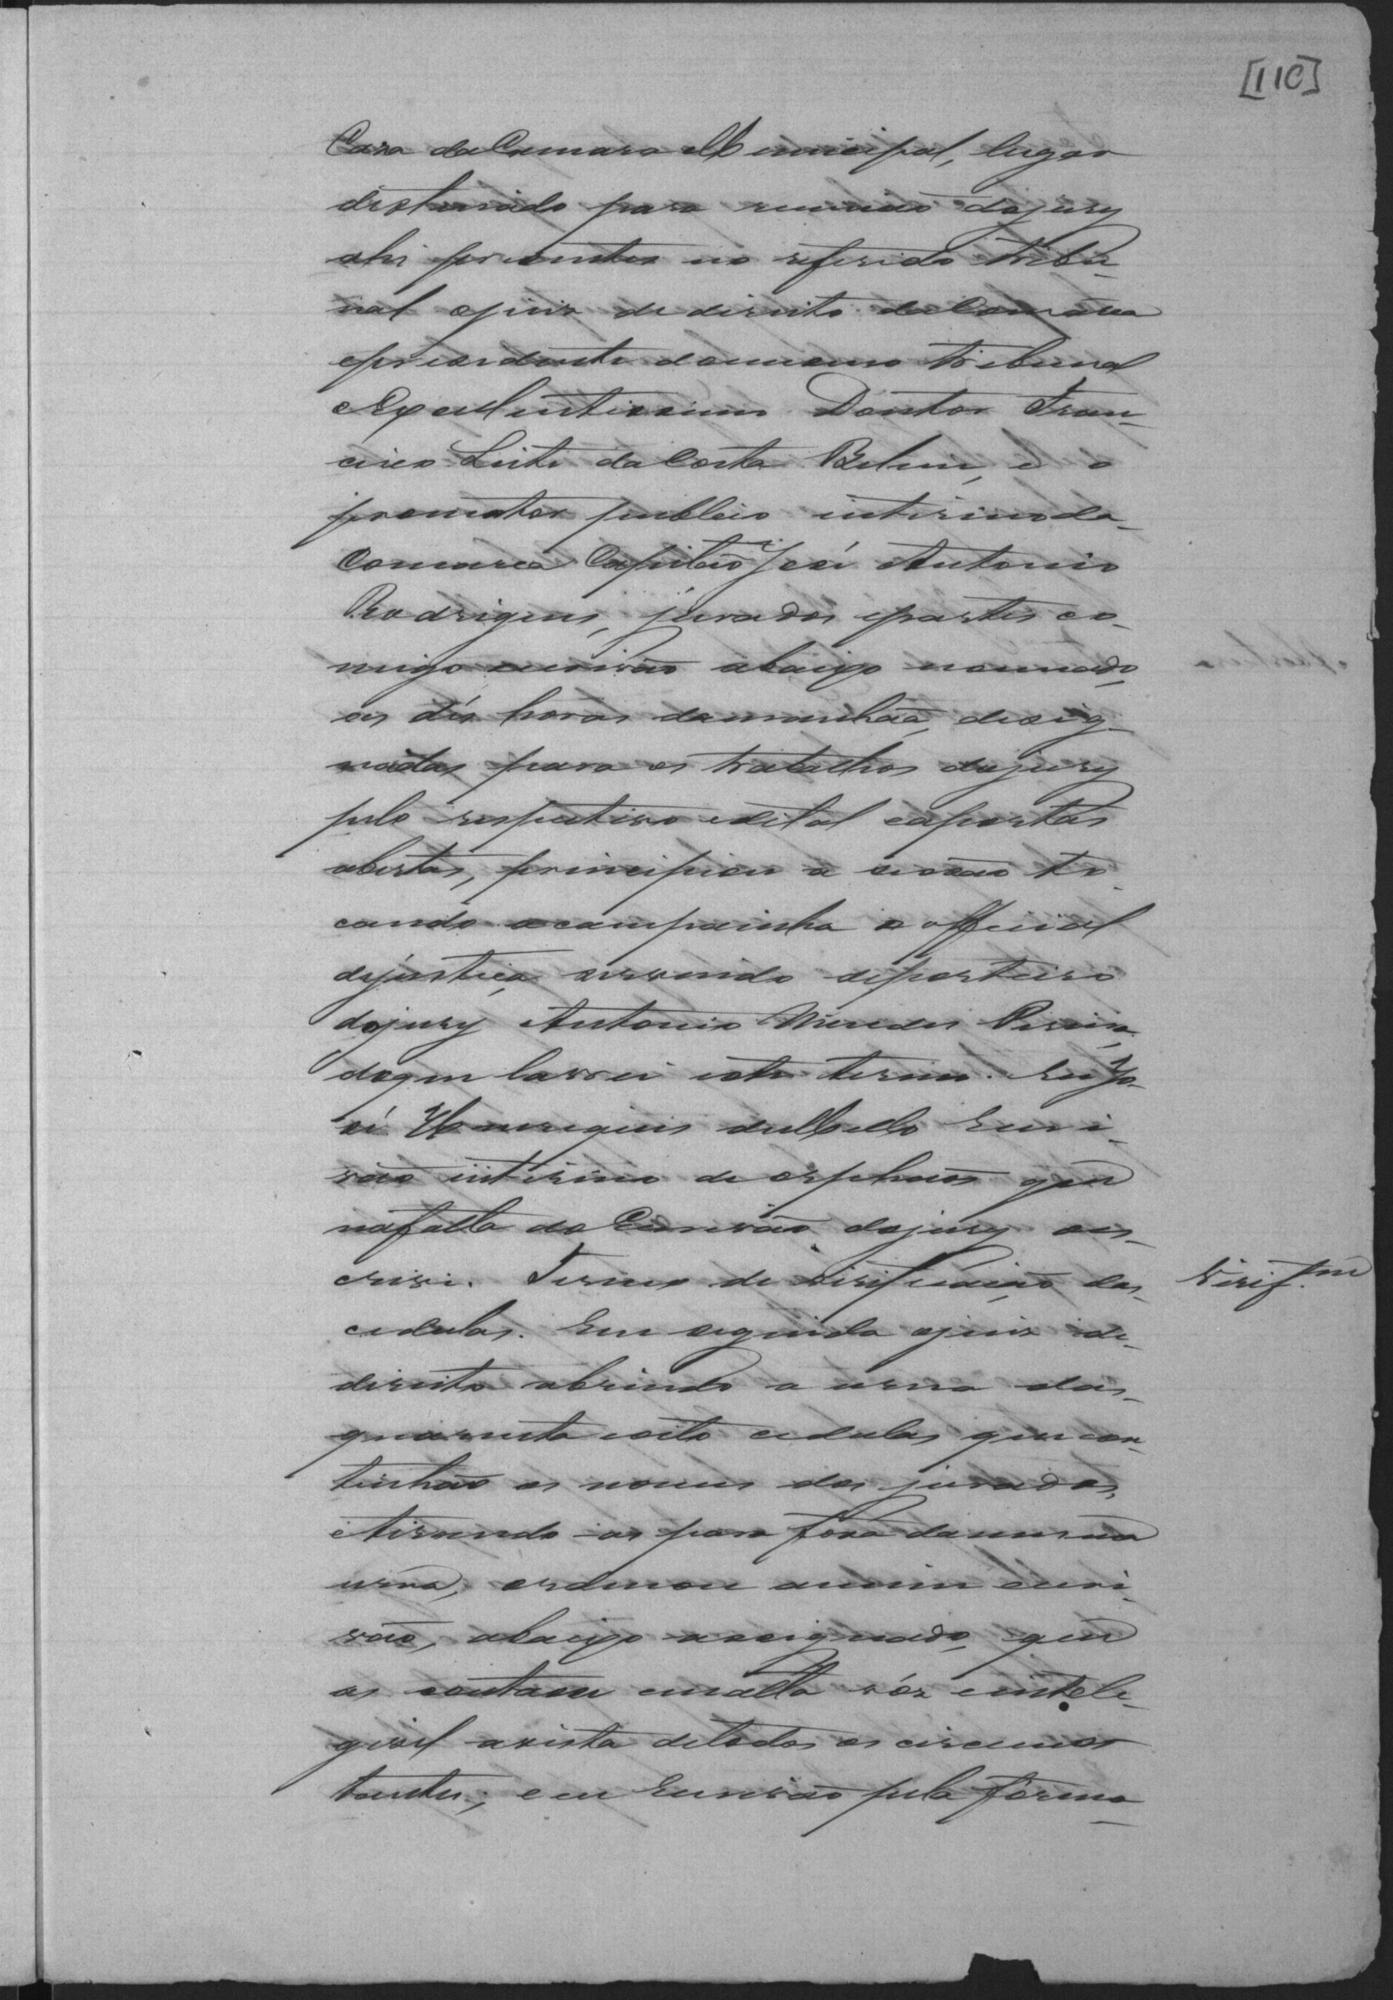 [110]
Casa da Camara Municipal, lugar
distinado para reunião dojury
ahi presentes no referido tribu-
nal ojuis de direito da Comarca
epresidente domesmo tribunal
Excelentissimo Doutor Fran-
cisco Leite da Costa Belem, e o
promotor publico interino da
Comarca Capitão José Antonio
Rodrigues, jurados epartes co-
migo escrivão abaixo nomeado,
as dés horas damanhãa, desig-
nadas para os trabalhos dojury
pelo respectivo edital eaportas
abertas, principiou a sessão to-
cando acampainha o official
dejustiça servindo deporteiro
dojury Antonio Mendes Pereira,
doque lavrei este termo. Eu Jo-
sé Henriques deMello Escri-
vão interino de orphãos que
nafalta do Escrivão dojury es-
crivi. Termo de Virificação das
cedulas. Em seguida ojuis de
direito abrindo a urna das
quarenta eoito cedulas que con-
tinhão os nomes dos jurados,
etirando-as para fora damesma
urna, ordenou amim escri-
vão, abaixo assignado, que
as contasse emalta vós eintele-
givel avista detodos os circuns-
tantes; e eu Escrivão pela forma
Virif.am